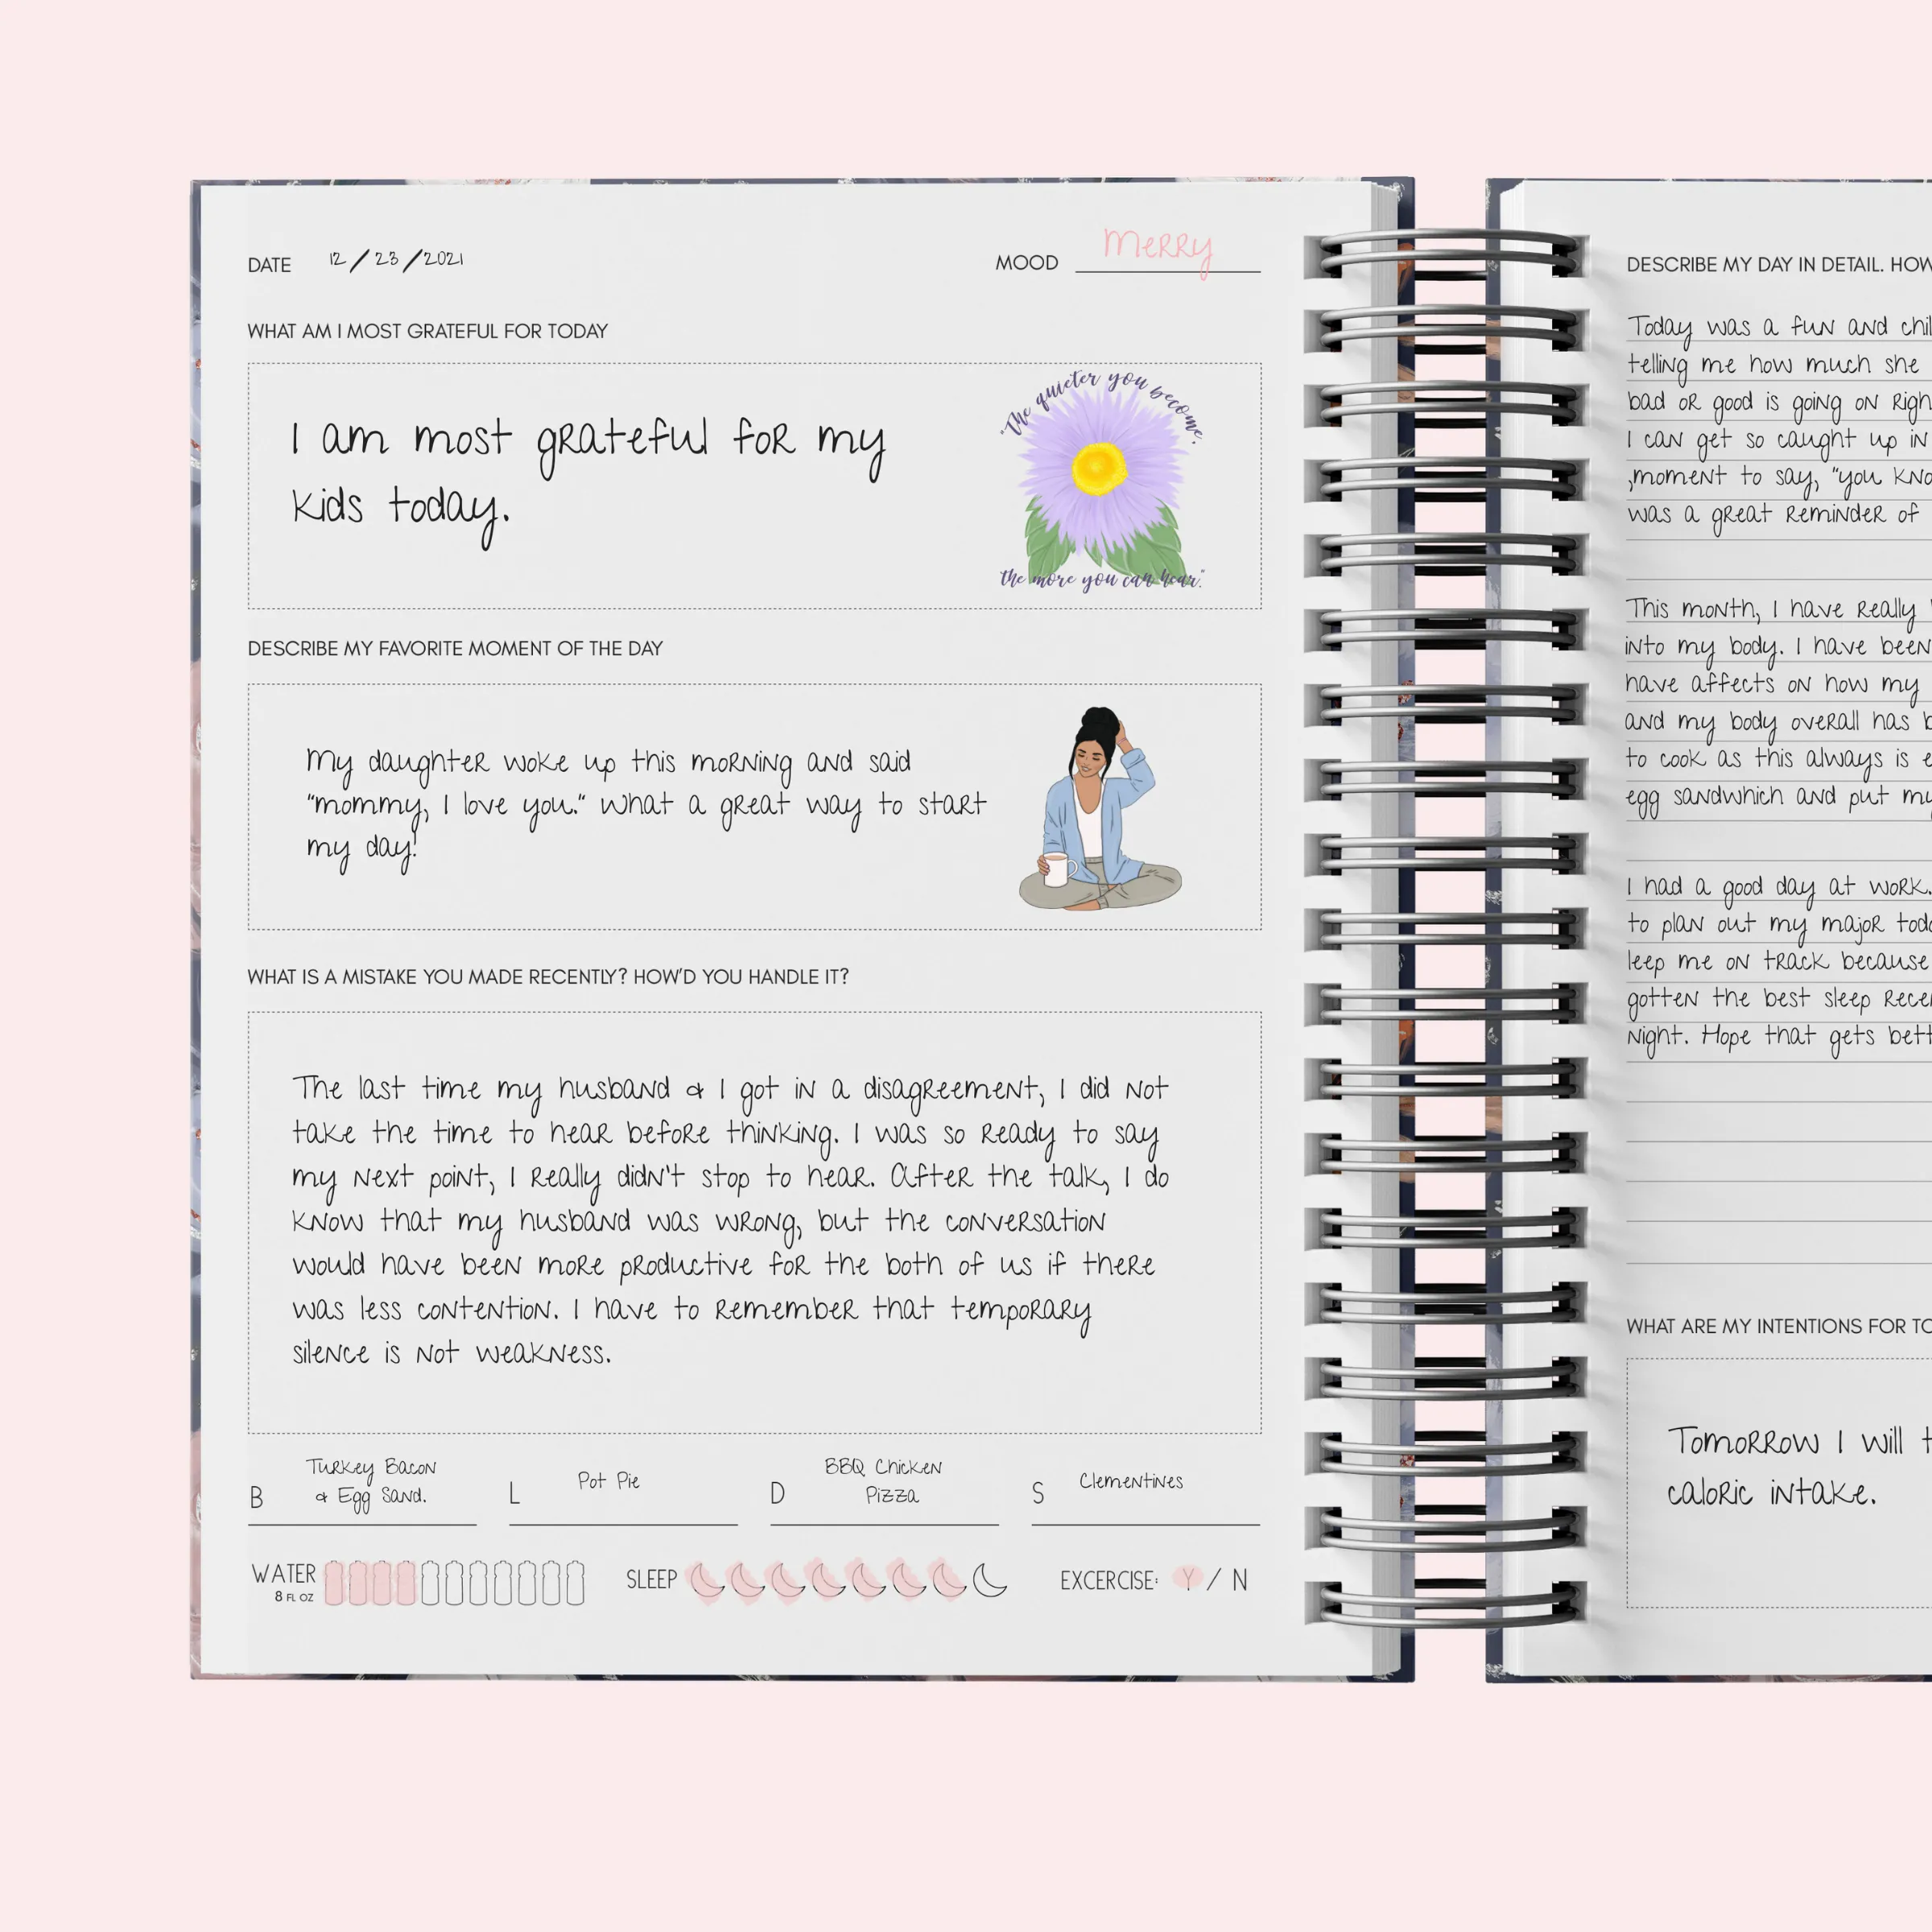 DATE 12/23/2021
MOOD Merry
WHAT AM I MOST GRATEFUL FOR TODAY
I am most grateful for my
kids today.
"The quieter you become,
the more you can hear."
DESCRIBE MY FAVORITE MOMENT OF THE DAY
My daughter woke up this morning and said
"mommy, I love you." What a great way to start
my day!
WHAT IS A MISTAKE YOU MADE RECENTLY? HOW'D YOU HANDLE IT?
The last time my husband & I got in a disagreement, I did not
take the time to hear before thinking. I was so ready to say
my next point, I really didn't stop to hear. After the talk, I do
know that my husband was wrong, but the conversation
would have been more productive for the both of us if there
was less contention. I have to remember that temporary
silence is not weakness.
B Turkey Bacon
& Egg Sand.
L Pot Pie
D BBQ Chicken
Pizza
S Clementines
WATER
8 FL OZ
SLEEP
EXCERCISE: Y / N
DESCRIBE MY DAY IN DETAIL. HOW
Today was a fun and
telling me how much she
bad or good is going on
I can get so caught up in
,moment to say, "you
was a great reminder of
This month, I have really
into my body. I have been
have affects on how my
and my body overall has
to cook as this always is
egg sandwhich and put my
I had a good day at work.
to plan out my major
leep me on track because
gotten the best sleep
night. Hope that gets
WHAT ARE MY INTENTIONS FOR
Tomorrow I will
caloric intake.